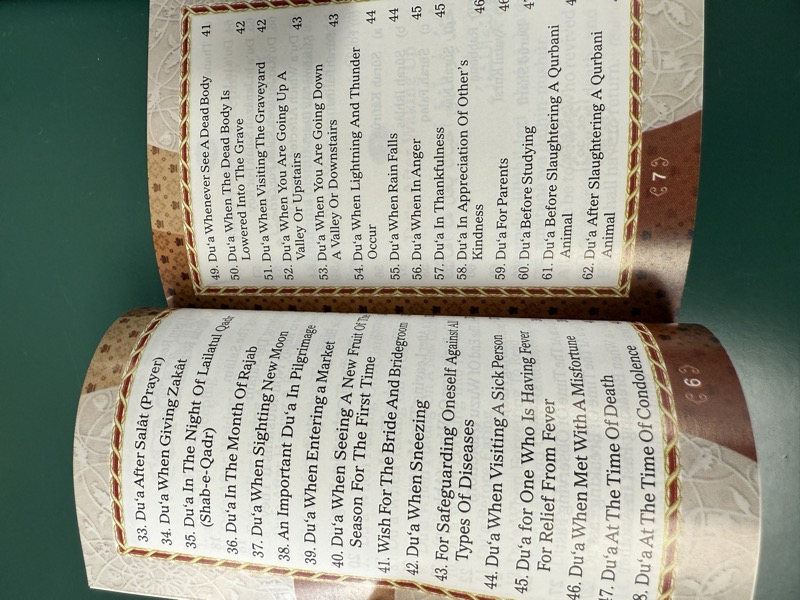 33. Du‘a After Salât (Prayer)
34. Du‘a When Giving Zakât
35. Du‘a In The Night Of Lailatul Qadr
(Shab-e-Qadr)
36. Du‘a In The Month Of Rajab
37. Du‘a When Sighting New Moon
38. An Important Du‘a In Pilgrimage
39. Du‘a When Entering a Market
40. Du‘a When Seeing A New Fruit Of
Season For The First Time
41. Wish For The Bride And Bridegroom
42. Du‘a When Sneezing
43. For Safeguarding Oneself Against All
Types Of Diseases
44. Du‘a When Visiting A Sick Person
45. Du‘a for One Who Is Having Fever
For Relief From Fever
46. Du‘a When Met With A Misfortune
47. Du‘a At The Time Of Death
8. Du‘a At The Time Of Condolence
6
49. Du‘a Whenever See A Dead Body 41
50. Du‘a When The Dead Body Is
Lowered Into The Grave 42
51. Du‘a When Visiting The Graveyard 42
52. Du‘a When You Are Going Up A
Valley Or Upstairs 43
53. Du‘a When You Are Going Down
A Valley Or Downstairs 43
54. Du‘a When Lightning And Thunder
Occur 44
55. Du‘a When Rain Falls 44
56. Du‘a When In Anger 45
57. Du‘a In Thankfulness 45
58. Du‘a In Appreciation Of Other's
Kindness 46
59. Du‘a For Parents
60. Du‘a Before Studying
61. Du‘a Before Slaughtering A Qurbani
Animal
62. Du‘a After Slaughtering A Qurbani
Animal
7